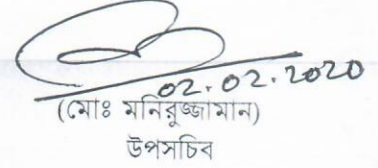 02.02.2020
(মোঃ মনিরুজ্জামান)
উপসচিব